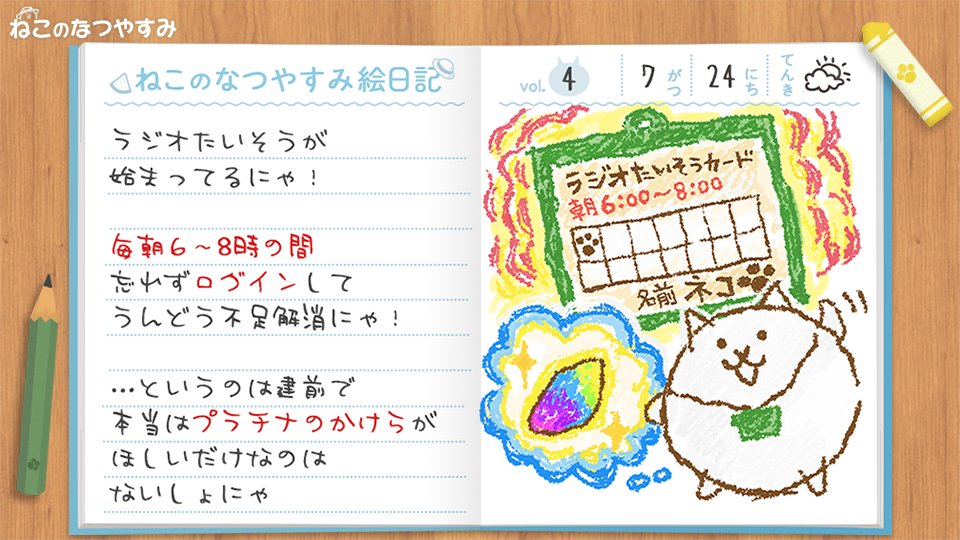 ねこのなつやすみ
ねこのなつやすみ絵日記
ラジオたいそうが
始まってるにゃ！
毎朝6～8時の間
忘れずログインして
うんどう不足解消にゃ！
…というのは建前で
本当はプラチナのかけらが
ほしいだけなのは
ないしょにゃ
vol. 4 7 がつ 24 にち てんき
ラジオたいそうカード
朝6:00～8:00
名前 ネコ